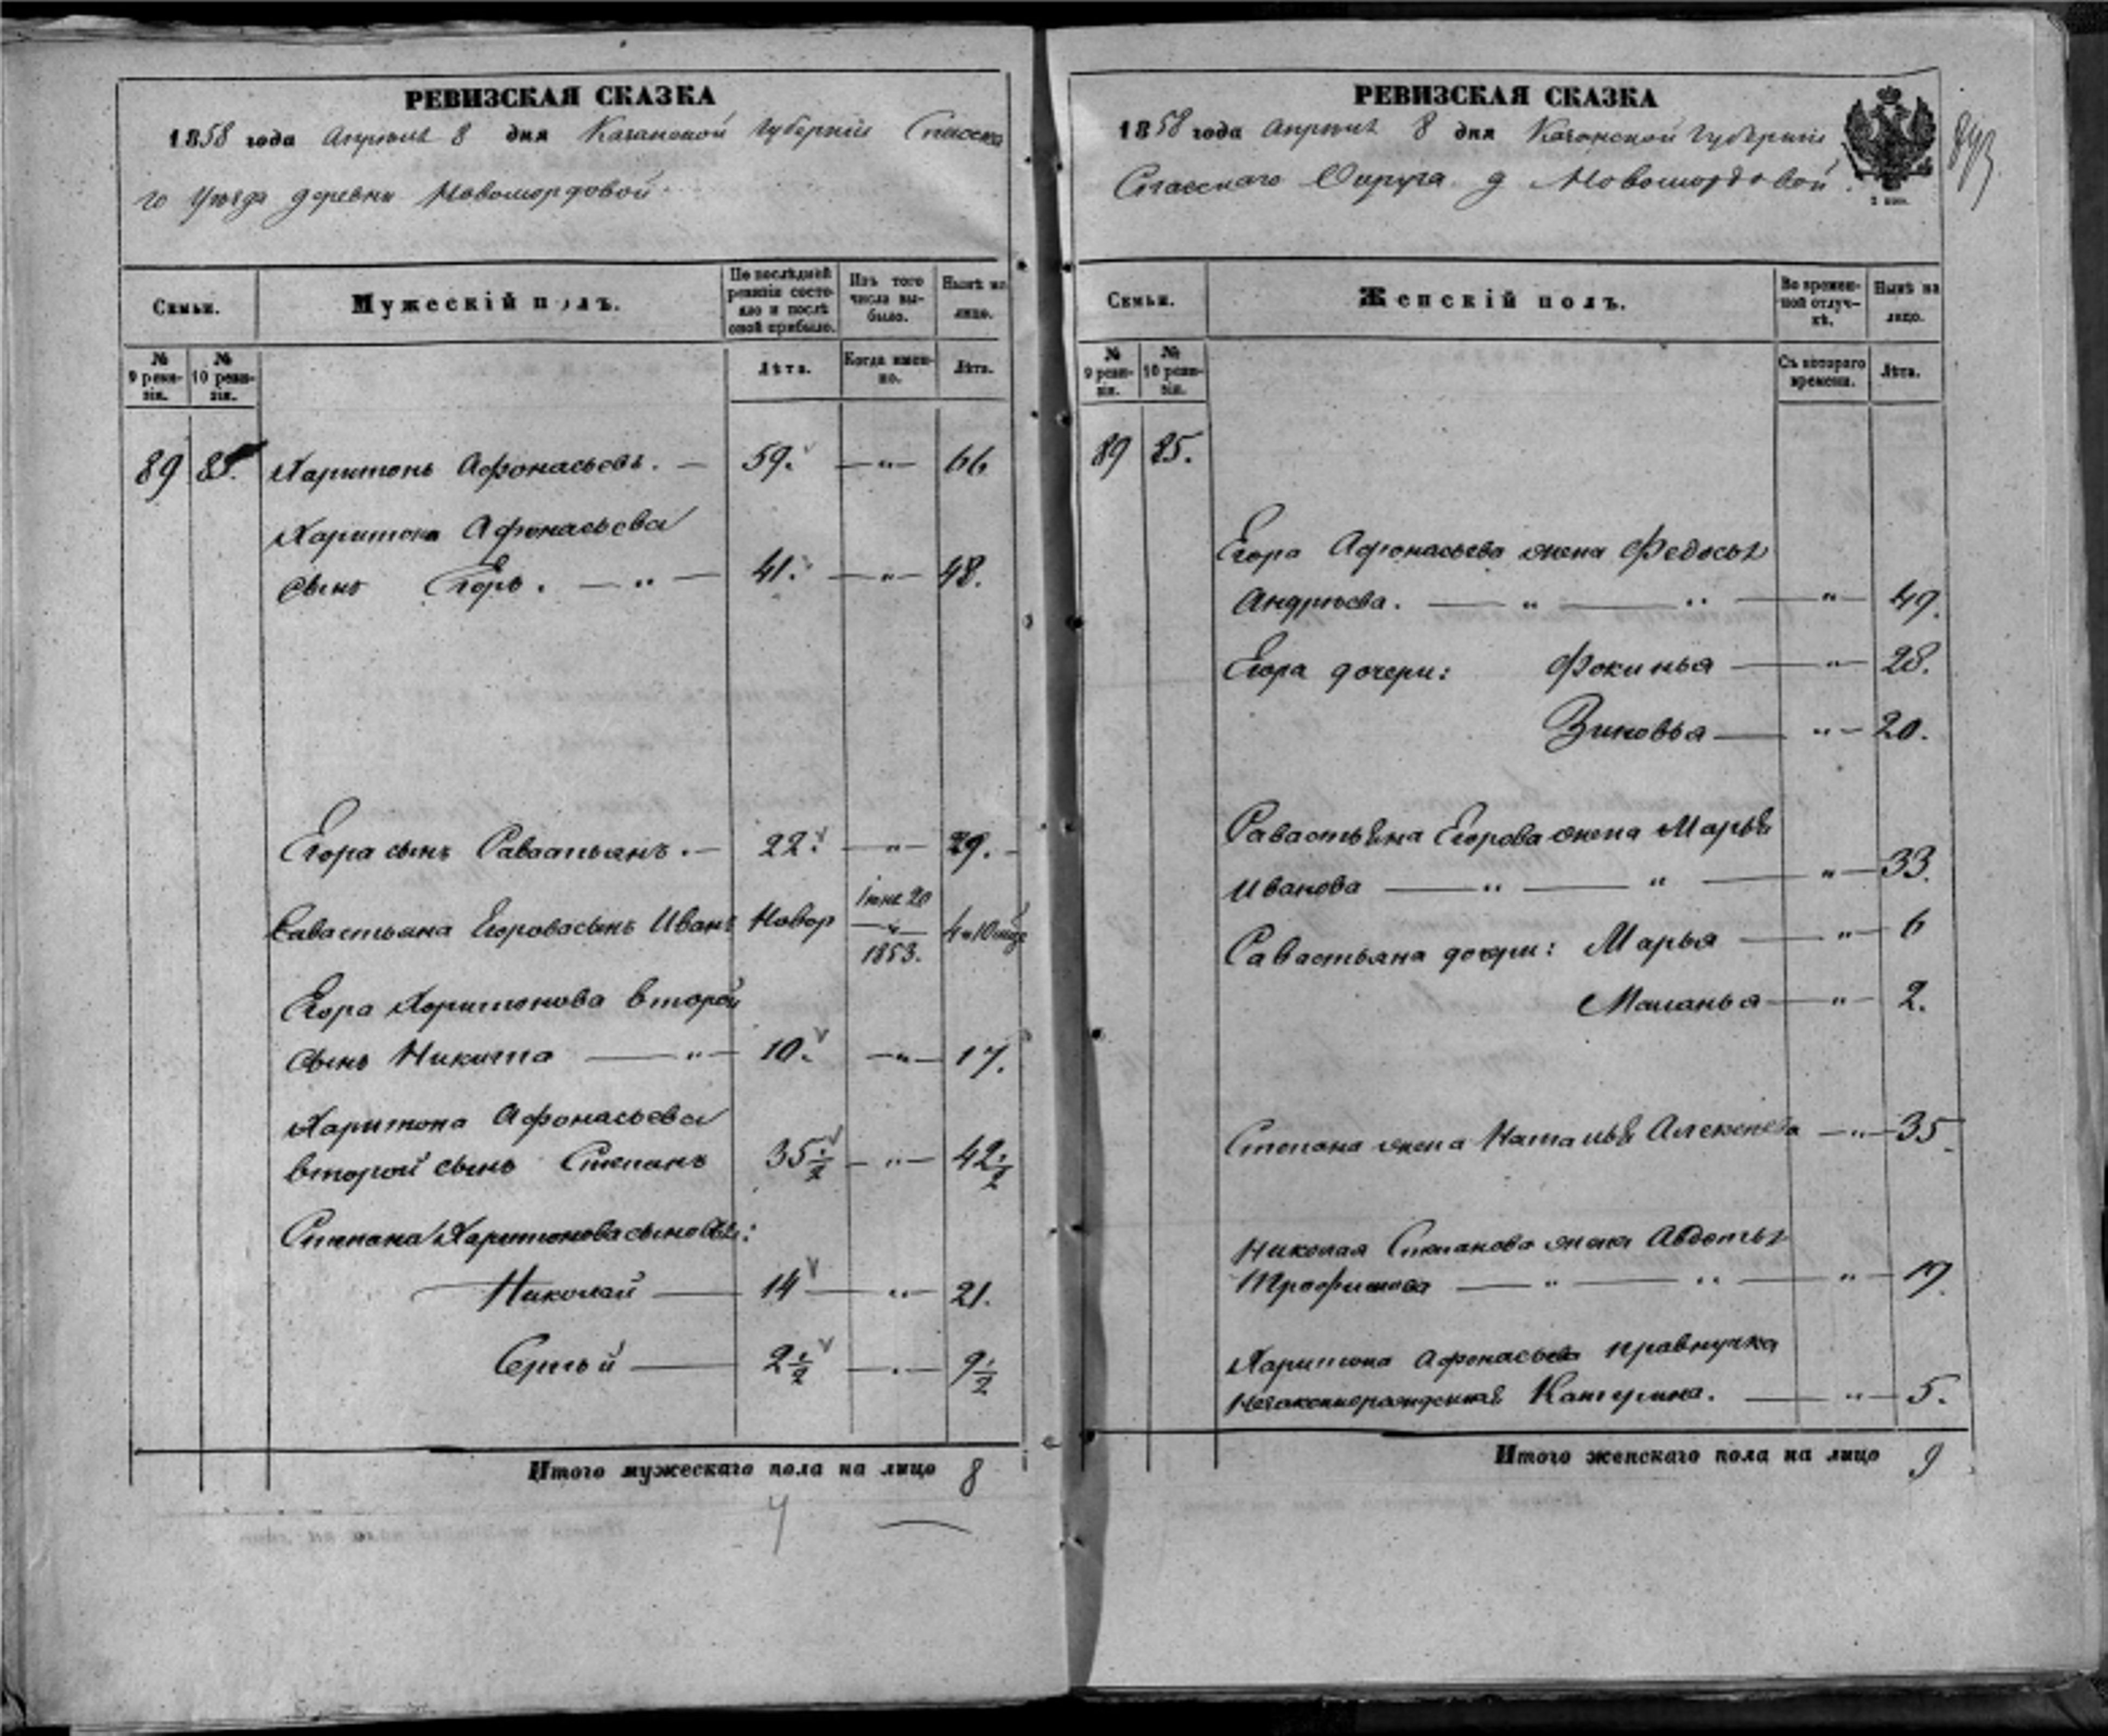 РЕВИЗСКАЯ СКАЗКА
1858 года Апрѣля 8 дня Казанской Губерніи Спасска
го Уѣзда деревни Новомордовой
Семьи.
Мужескій полъ.
По послѣдней ревизіи состояло и послѣ оной прибыло.
Изъ того числа выбыло.
Нынѣ на лицо.
№ 9 ревизіи.
№ 10 ревизіи.
Лѣта.
Когда именно.
Лѣта.
89 85. Харитонъ Афонасьевъ. — 59. —„— 66
Харитона Афонасьева
сынъ Егоръ. — „ — 41. —„— 48.
Егора сынъ Савастьянъ. — 22. —„— 29.
Іюня 20
Савастьяна Егорова сынъ Иванъ Новор —„— 4 и 10 мѣс
1853.
Егора Харитонова второй
сынъ Никита — „ — 10. —„— 17.
Харитона Афонасьева
второй сынъ Степанъ 35 1/2 —„— 42 1/2
Степана Харитонова сыновья:
Николай — 14 —„— 21.
Сергѣй — 2 1/2 —„— 9 1/2
Итого мужескаго пола на лицо 8
РЕВИЗСКАЯ СКАЗКА
1858 года Апрѣля 8 дня Казанской Губерніи
Спасскаго Округа д Новомордовой.
Семьи.
Женскій полъ.
Во временной отлучкѣ.
Нынѣ на лицо.
№ 9 ревизіи.
№ 10 ревизіи.
Съ котораго времени.
Лѣта.
89 85.
Егора Афонасьева жена Федосья
Андрѣева. — „ — „ — „ — 49.
Егора дочери: Фокинья — „ — 28.
Зиновья — „ — 20.
Савастьяна Егорова жена Марья
Иванова — „ — „ — „ — 33.
Савастьяна дочери: Марья — „ — 6
Маланья — „ — 2.
Степана жена Наталья Алексѣева — „ — 35.
Николая Степанова жена Авдотья
Трофимова — „ — „ — „ — 19.
Харитона Афонасьева правнучка
незаконнорожденная — „ — 5.
Итого женскаго пола на лицо 9